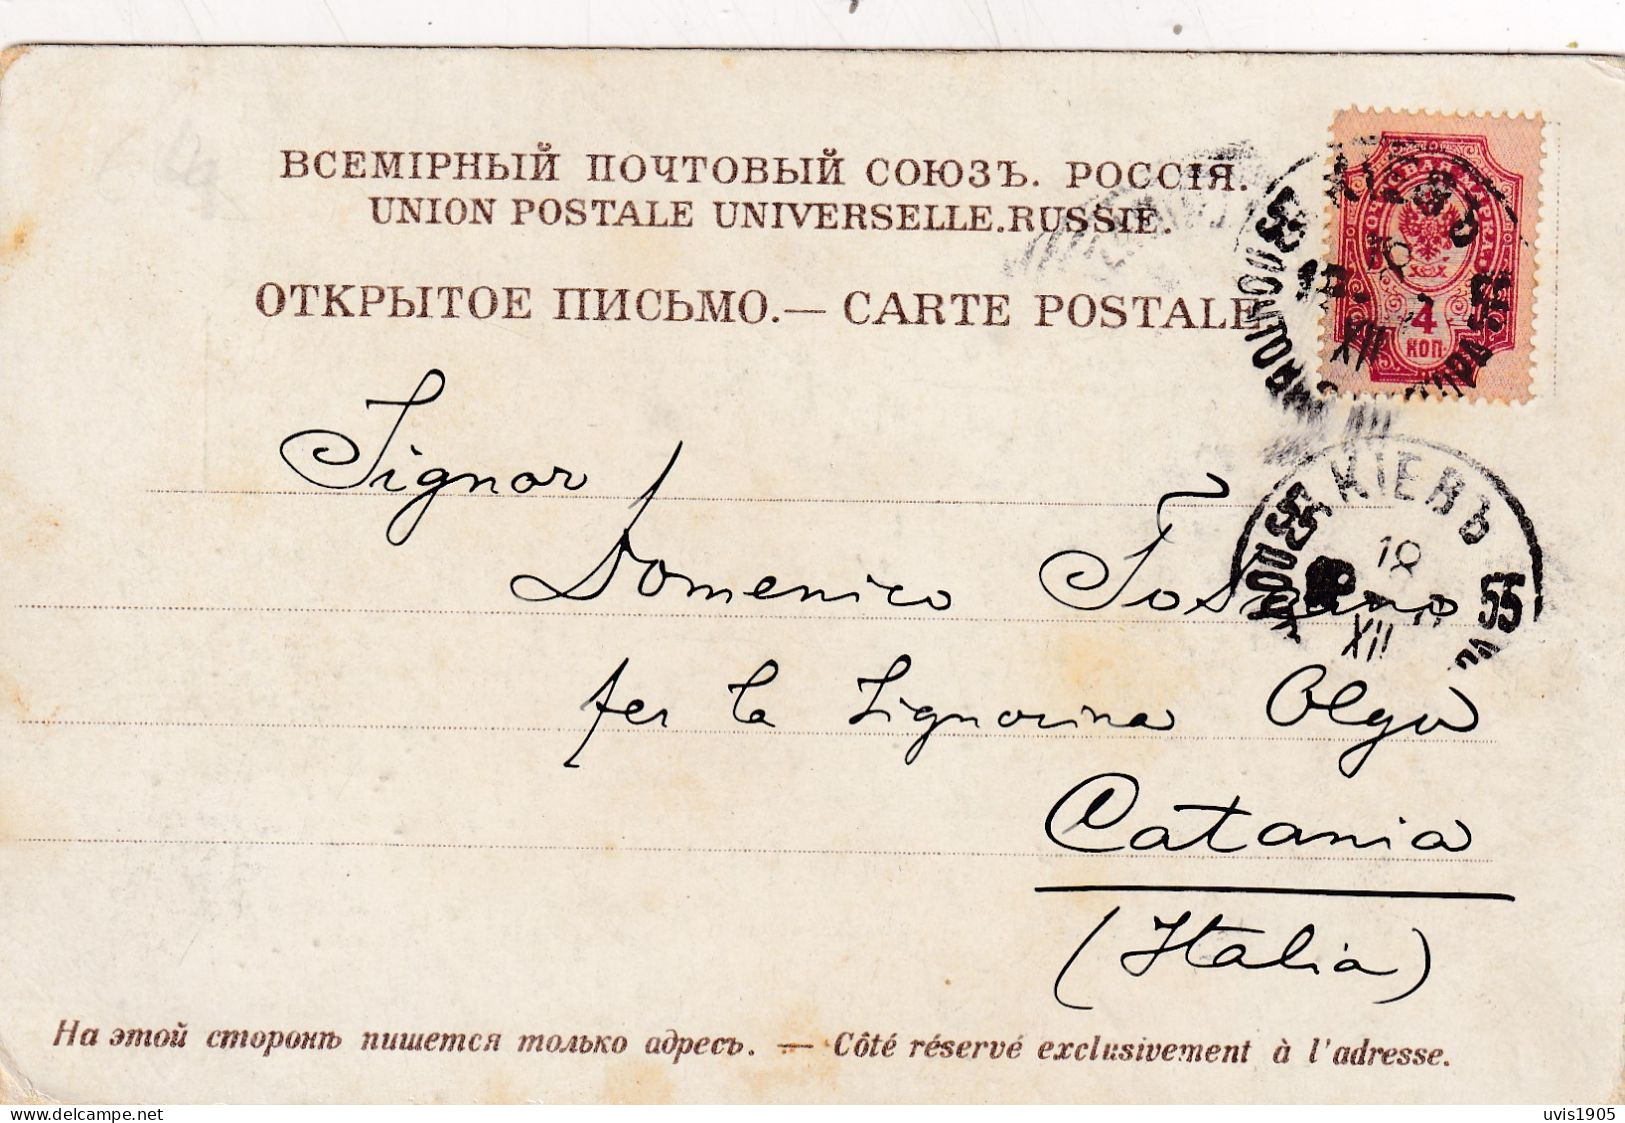 ВСЕМІРНЫЙ ПОЧТОВЫЙ СОЮЗЪ. РОССІЯ.
UNION POSTALE UNIVERSELLE.RUSSIE.
ОТКРЫТОЕ ПИСЬМО.— CARTE POSTALE
4
КОП.
55
55
XII
КІЕВЪ
55
55
XII
Signor
Domenico
per la Signorina Olga
Catania
(Italia)
На этой сторонѣ пишется только адресъ. — Côté réservé exclusivement à l'adresse.
delcampe.net
uvis1905